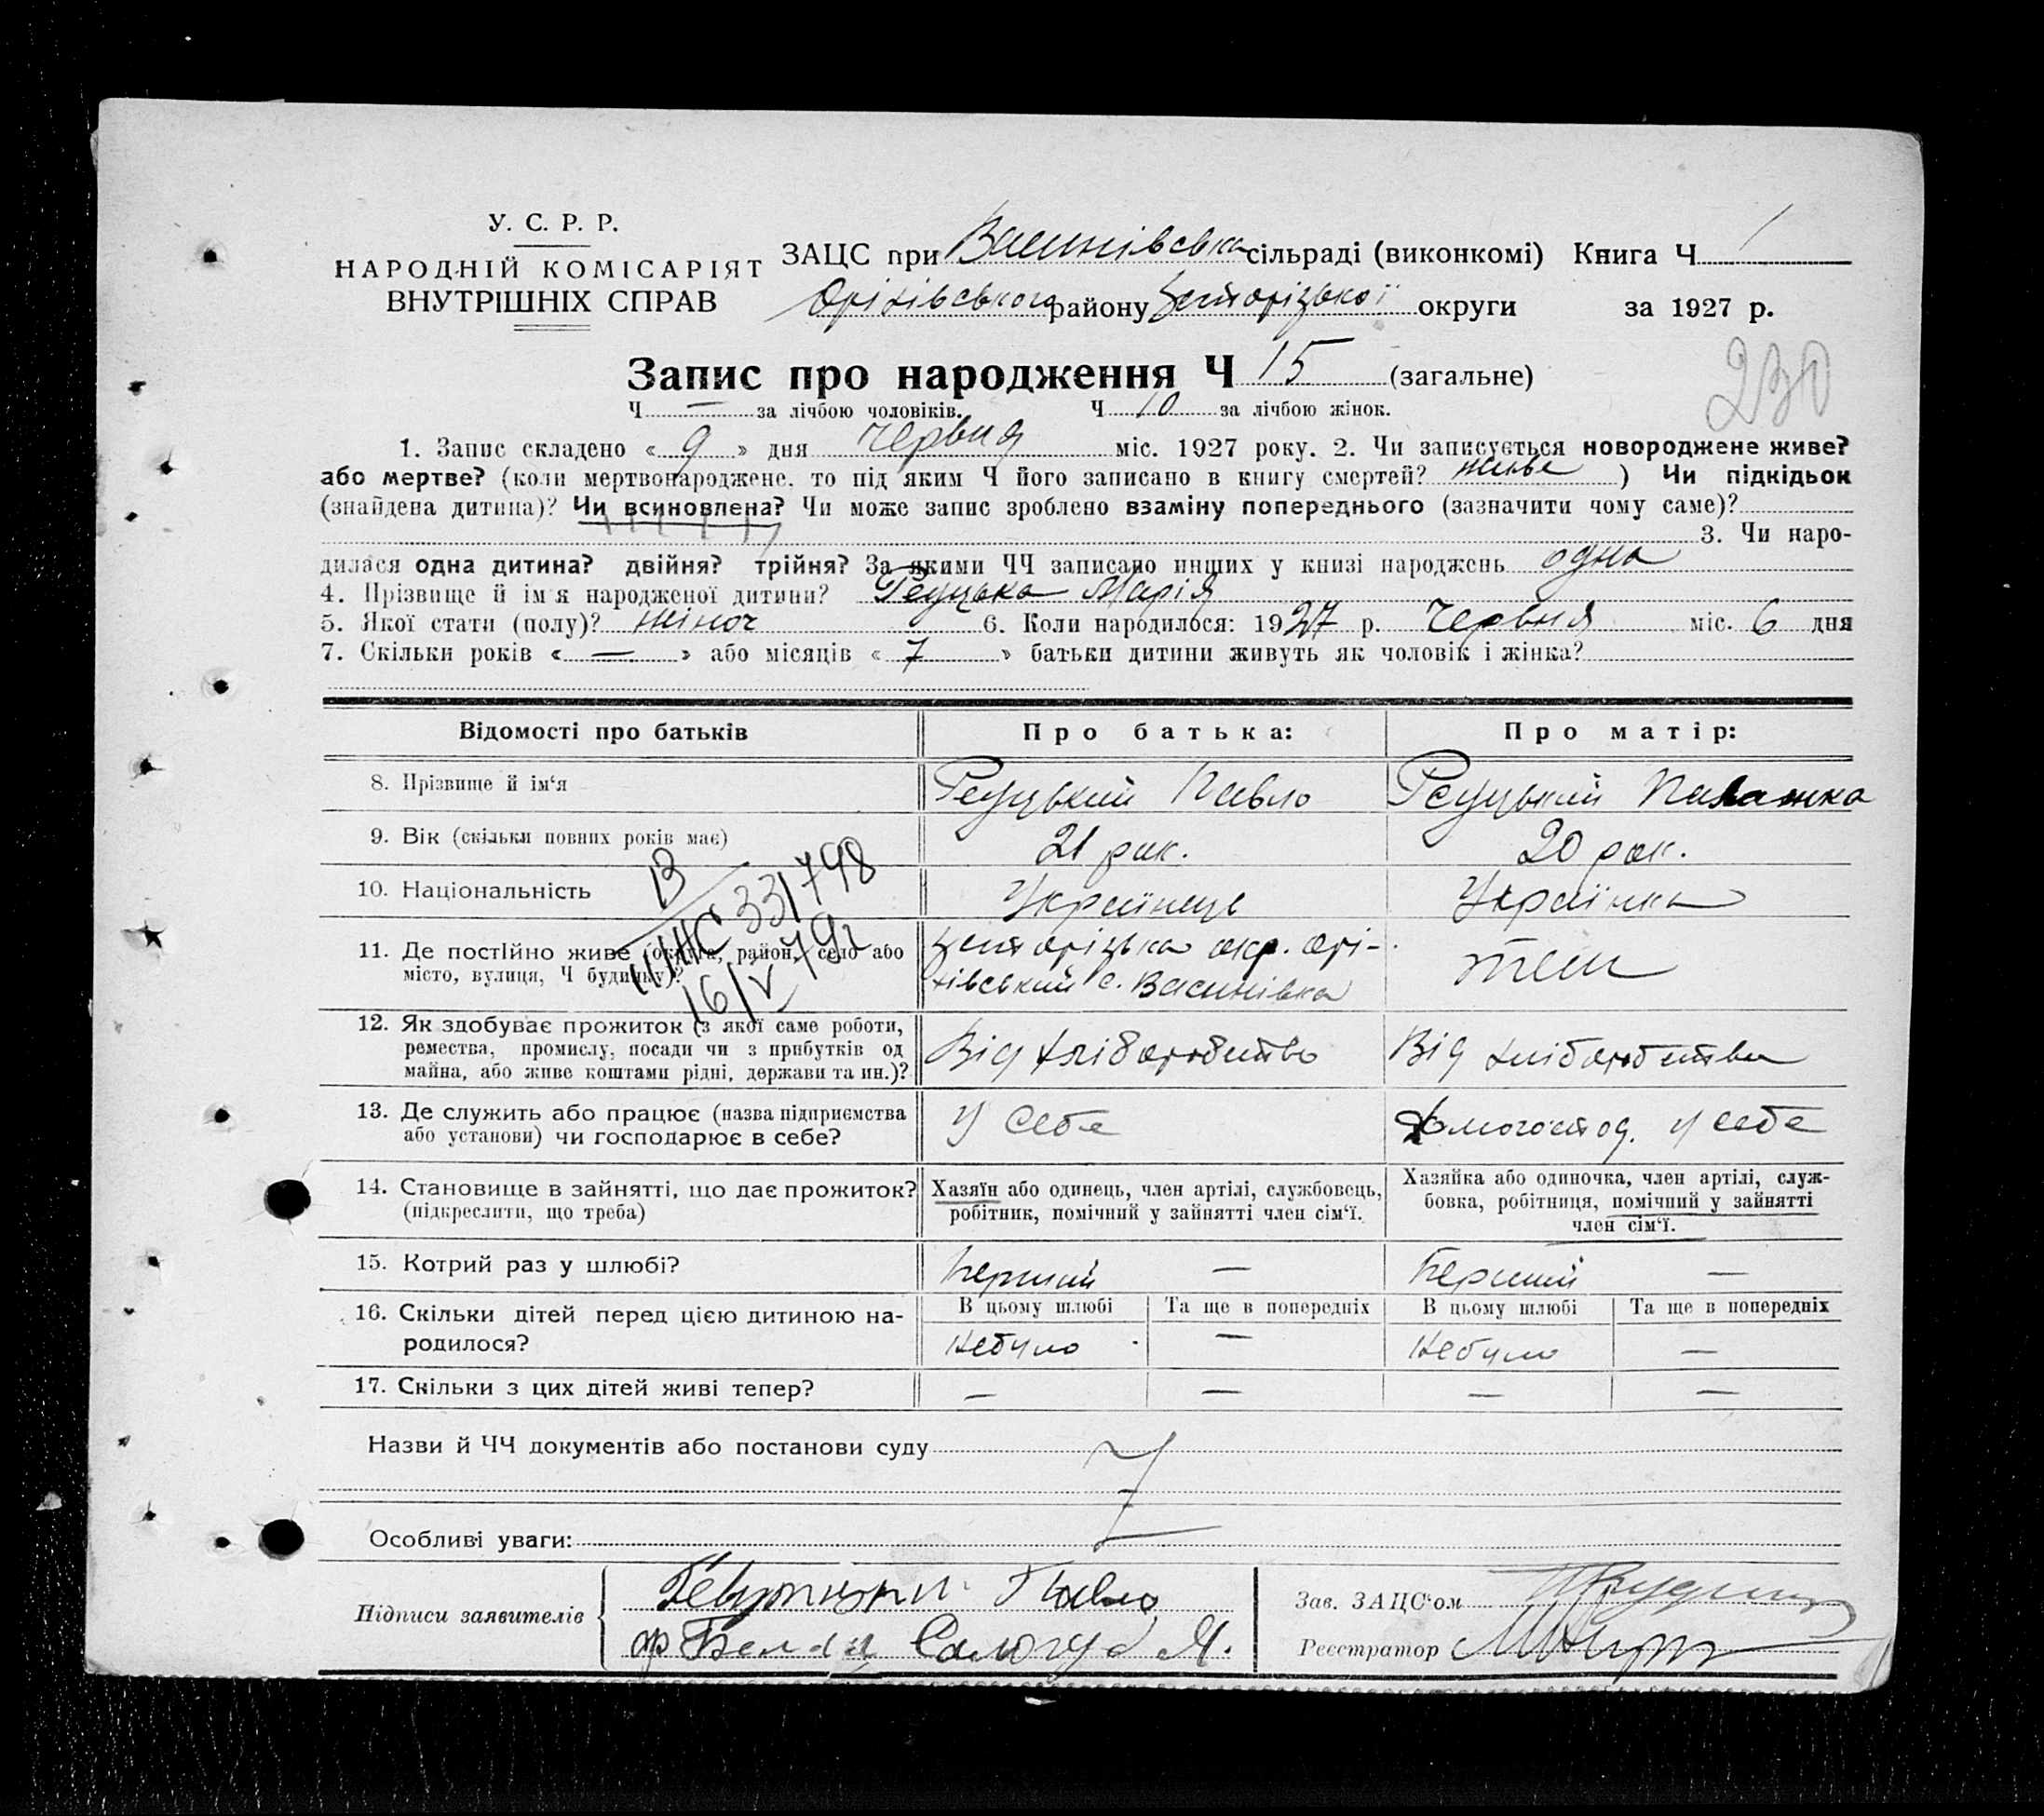 У. С. Р. Р.
НАРОДНІЙ КОМІСАРІЯТ
ВНУТРІШНІХ СПРАВ
ЗАЦС при Васинівська сільраді (виконкомі) Книга Ч 1
Оріхівського району Запорізької округи за 1927 р.
Запис про народження Ч 15 (загальне)
230
Ч — за лічбою чоловіків. Ч 10 за лічбою жінок.
1. Запис складено « 9 » дня Червня міс. 1927 року. 2. Чи записується новороджене живе?
або мертве? (коли мертвонароджене, то під яким Ч його записано в книгу смертей? живе ) Чи підкідьок
(знайдена дитина)? Чи всиновлена? Чи може запис зроблено взаміну попереднього (зазначити чому саме)?
3. Чи наро-
дилася одна дитина? двійня? трійня? За якими ЧЧ записано инших у книзі народжень одна
4. Прізвище й ім'я народженої дитини? Реуцька Марія
5. Якої стати (полу)? жіноч 6. Коли народилося: 1927 р. Червня міс. 6 дня
7. Скільки років « — » або місяців « 7 » батьки дитини живуть як чоловік і жінка?
Відомості про батьків Про батька: Про матір:
8. Прізвище й ім'я Реуцький Павло Реуцький Палажка
9. Вік (скільки повних років має) 21 рок. 20 рок.
10. Національність Українець Українка
33/798
16/V 79г
11. Де постійно живе (округа, район, село або
місто, вулиця, Ч будинку)?
Запорізька окр. Орі-
хівський с. Васинівка
теж
12. Як здобуває прожиток (з якої саме роботи,
ремества, промислу, посади чи з прибутків од
майна, або живе коштами рідні, держави та ин.)?
Від хліборобства Від хліборобства
13. Де служить або працює (назва підприємства
або установи) чи господарює в себе?
У себе Домогоспод. у себе
14. Становище в зайнятті, що дає прожиток?
(підкреслити, що треба)
Хазяїн або одинець, член артілі, службовець,
робітник, помічний у зайнятті член сім'ї.
Хазяйка або одиночка, член артілі, служ-
бовка, робітниця, помічний у зайнятті
член сім'ї.
15. Котрий раз у шлюбі? Перший — Перший —
16. Скільки дітей перед цією дитиною на-
родилося?
В цьому шлюбі Та ще в попередніх В цьому шлюбі Та ще в попередніх
Небуло — Небуло —
17. Скільки з цих дітей живі тепер? — — — —
Назви й ЧЧ документів або постанови суду
Особливі уваги:
Підписи заявителів
Павло
Сологуб М.
Зав. ЗАЦС'ом
Реєстратор